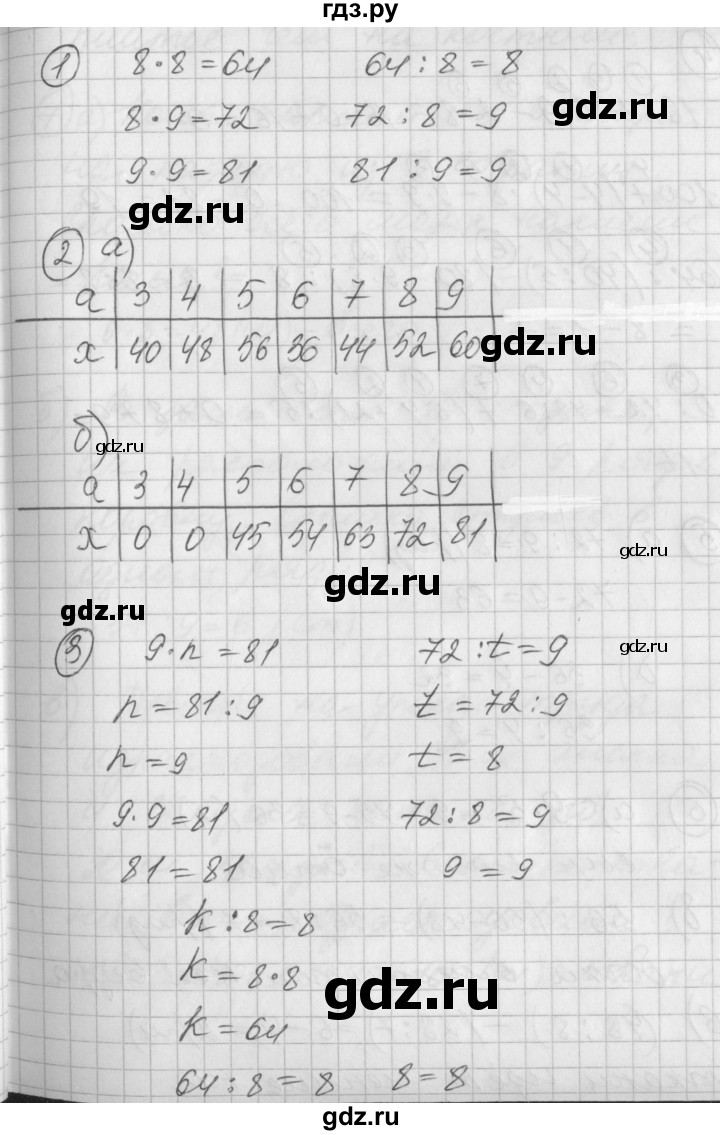 гдз.ру
1 8·8=64 64:8=8
8·9=72 72:8=9
gdz.ru
9·9=81 81:9=9
gdz.ru
2 а)
a 3 4 5 6 7 8 9
x 40 48 56 36 44 52 60
gdz.ru
б)
gdz.ru
a 3 4 5 6 7 8 9
x 0 0 45 54 63 72 81
gdz.ru
gdz.ru
gdz.ru
3 9·n=81 72:t=9
gdz.ru
n=81:9 t=72:9
n=9 t=8
9·9=81 72:8=9
81=81 9=9
k:8=8
k=8·8
gdz.ru
k=64
64:8=8 8=8
gdz.ru